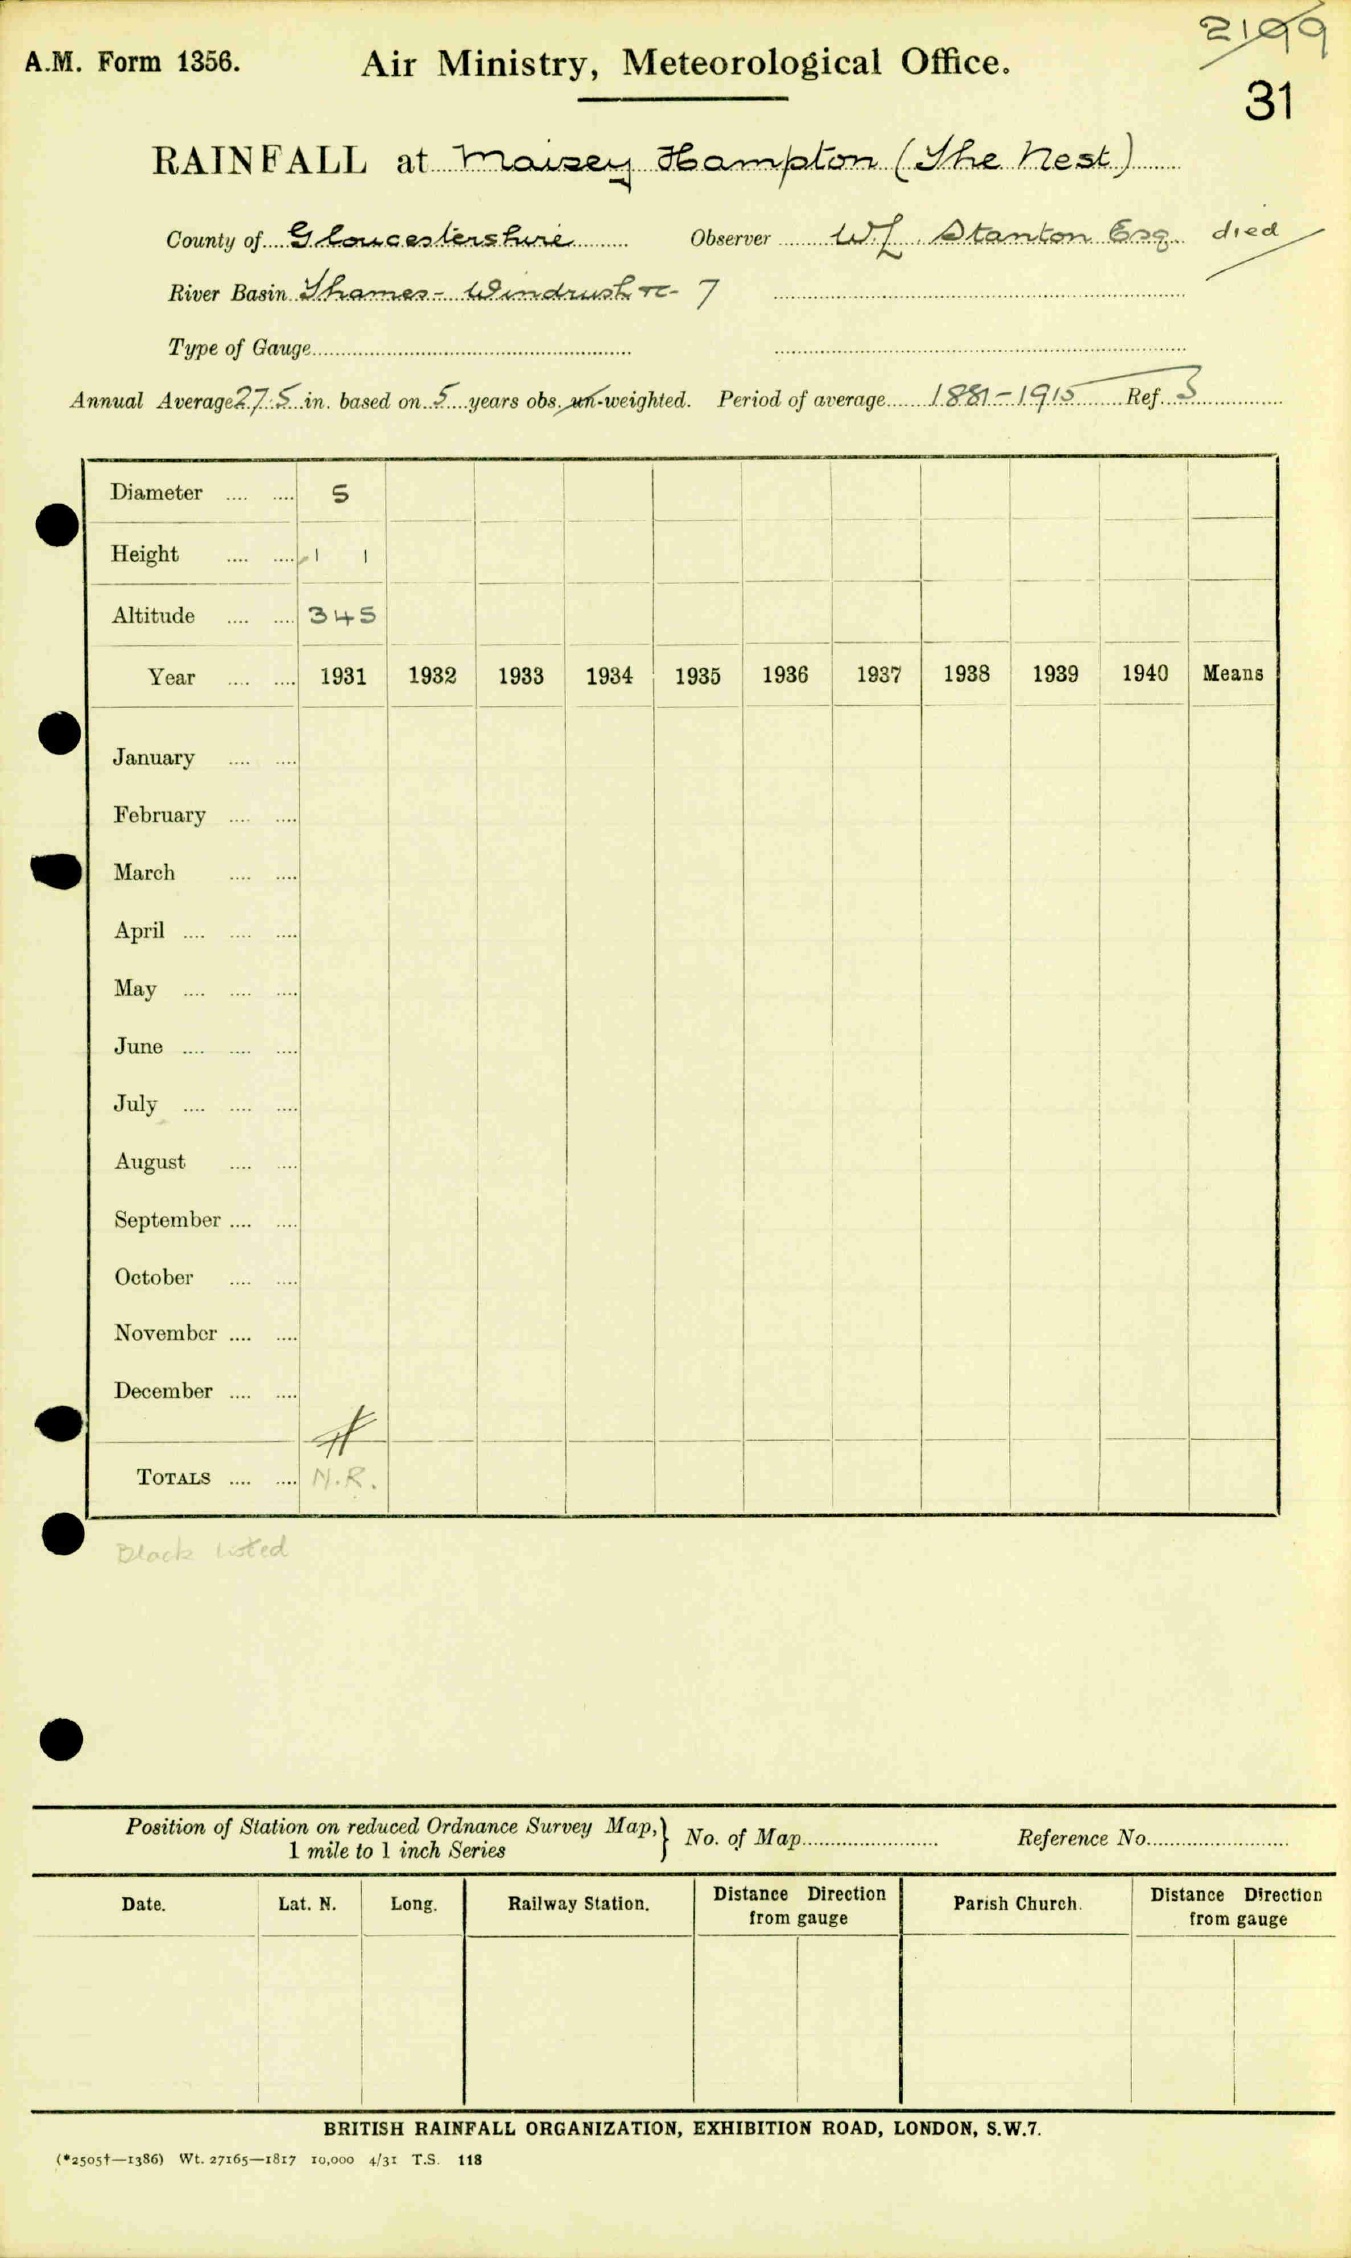 2199
A.M. Form 1356. Air Ministry, Meteorological Office.
31
RAINFALL at Maisey Hampton (The Nest)
County of Gloucestershire Observer W.L. Stanton Esq died
River Basin Thames - Windrush &c - 7
Type of Gauge
Annual Average 27.5 in. based on 5 years obs. un-weighted. Period of average 1881-1915 Ref. 3
Diameter .... .... 5
Height .... .... 1 1
Altitude .... .... 345
Year .... .... 1931 1932 1933 1934 1935 1936 1937 1938 1939 1940 Means
January .... ....
February .... ....
March .... ....
April .... .... ....
May .... .... ....
June .... .... ....
July .... .... ....
August .... ....
September .... ....
October .... ....
November .... ....
December .... ....
TOTALS .... .... N.R.
Black listed
Position of Station on reduced Ordnance Survey Map, } No. of Map Reference No.
1 mile to 1 inch Series
Date. Lat. N. Long. Railway Station. Distance Direction from gauge Parish Church. Distance Direction from gauge
BRITISH RAINFALL ORGANIZATION, EXHIBITION ROAD, LONDON, S.W.7.
(*2505†—1386) Wt. 27165—1817 10,000 4/31 T.S. 118